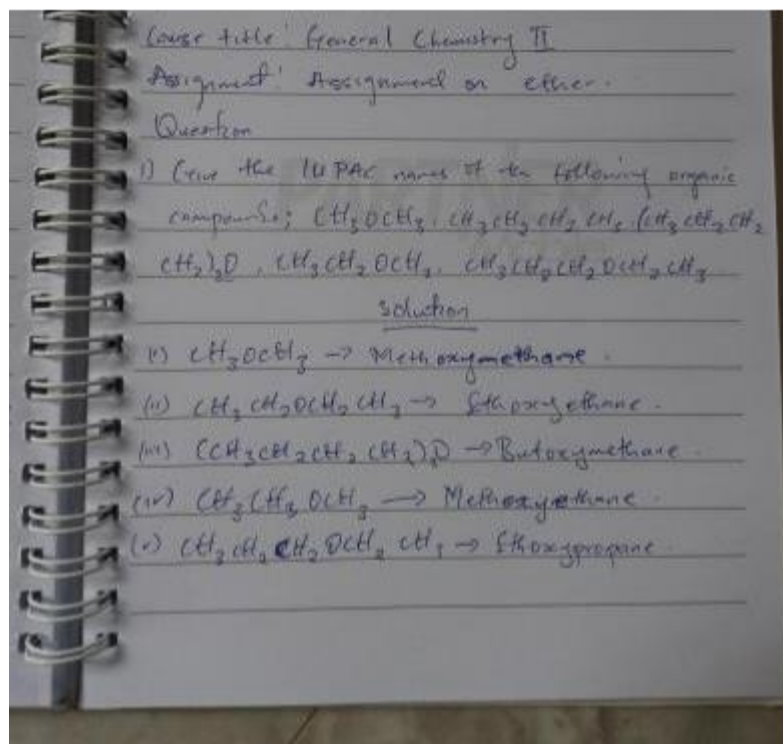 Course title: General Chemistry II
Assignment: Assignment on ether.
Question
1) Give the IUPAC names of the following organic
compounds; CH₃OCH₃, CH₃CH₂CH₂CH₃ (CH₃CH₂CH₂
CH₂)₂O, CH₃CH₂OCH₃, CH₃CH₂CH₂OCH₂CH₃
solution
(i) CH₃OCH₃ → Methoxymethane.
(ii) CH₃CH₂OCH₂CH₃ → Ethoxyethane.
(iii) (CH₃CH₂CH₂CH₂)₂O → Butoxymethane.
(iv) CH₃CH₃OCH₃ → Methoxyethane.
(v) CH₃CH₂CH₂OCH₂CH₃ → Ethoxypropane.